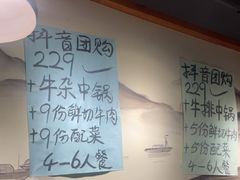 抖音团购
229
+牛杂中锅
+9份鲜切牛肉
+9份配菜
4-6人餐
抖音团购
229
+牛排中锅
+5份鲜切牛肉
+5份配菜
4-6人餐